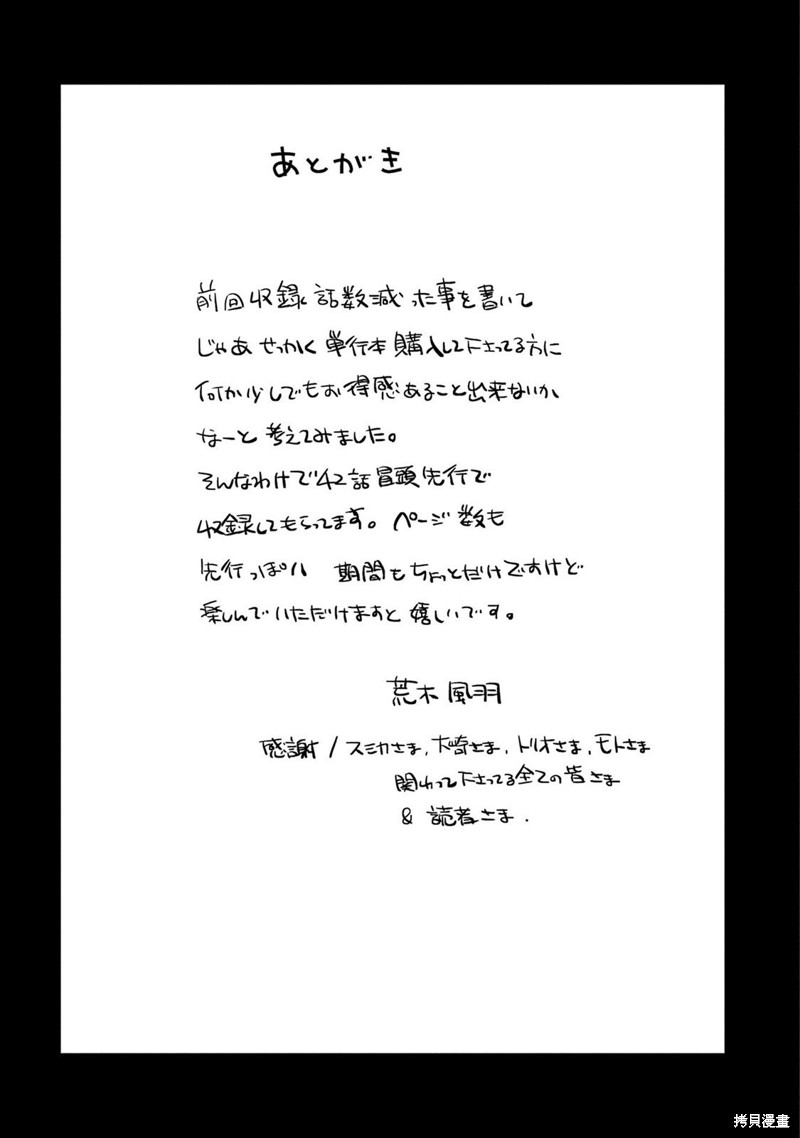 あとがき
前回収録話数減った事を書いて
じゃあせっかく単行本購入して下さってる方に
何か少しでもお得感あること出来ないか、
なーと考えてみました。
そんなわけで42話冒頭先行で
収録してもらってます。ページ数も
先行っぽい 期間もちょっとだけですけど
楽しんでいただけますと嬉しいです。
荒木風羽
感謝/スミカさま,大崎さま,トリオさま,モトさま
関わって下さってる全ての皆さま
& 読者さま.
拷貝漫畫